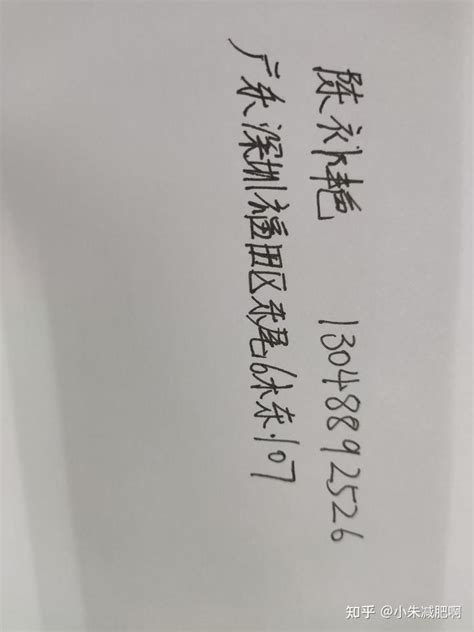 陈补艳 13048892526
广东深圳福田区东尾6木东.107
知乎 @小朱减肥啊